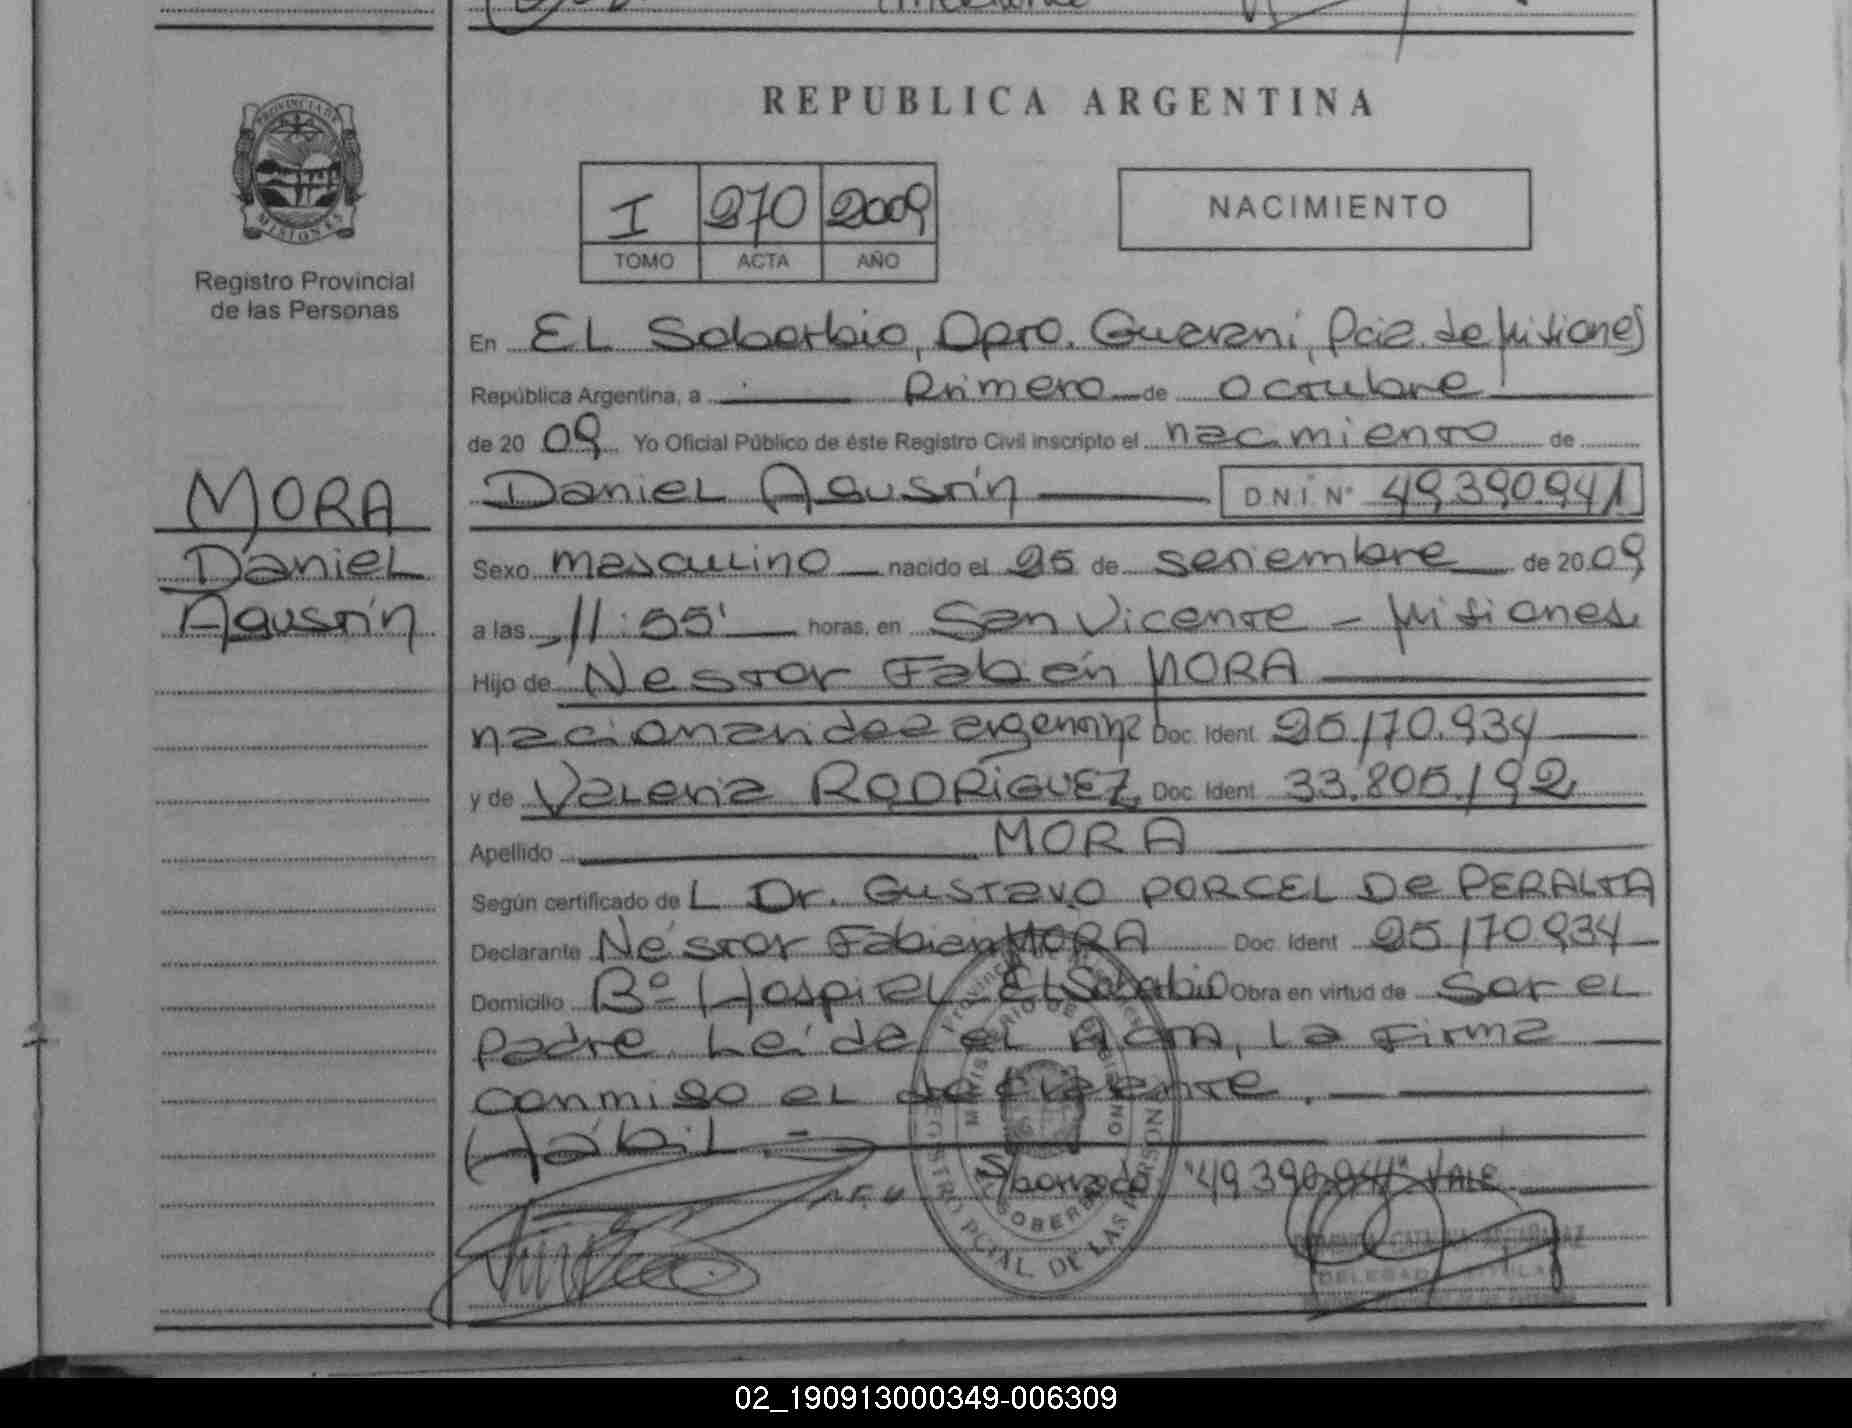 REPUBLICA ARGENTINA
PROVINCIA DE
MISIONES
Registro Provincial
de las Personas
I 270 2009
TOMO ACTA AÑO
NACIMIENTO
En EL Soberbio, Dpto. Guarani, Pcia. de Misiones
República Argentina, a Primero de Octubre
de 2009 Yo Oficial Público de éste Registro Civil inscripto el nacimiento de
MORA
Daniel
Agustín
Daniel Agustín D.N.I. N° 49.390.941
Sexo masculino nacido el 25 de setiembre de 2009
a las 11:55' horas, en San Vicente - Misiones
Hijo de Nestor Fabián MORA
nacionalidad argentina Doc. Ident 25.170.934
y de Valeria RODRÍGUEZ Doc. Ident 33.805.192
Apellido MORA
Según certificado de L Dr. Gustavo PORCEL De PERALTA
Declarante Néstor Fabian MORA Doc. Ident 25.170.934
Domicilio Bº Hospital El Soberbio Obra en virtud de Ser el
padre. Leída el Acta, la Firma
conmigo el declarante.
Hábil.-
S/borrado "49.390.941" VALE
REGISTRO PCIAL. DE LAS PERSONAS
SOBERBIO
DELEGADA TITULAR
02_190913000349-006309